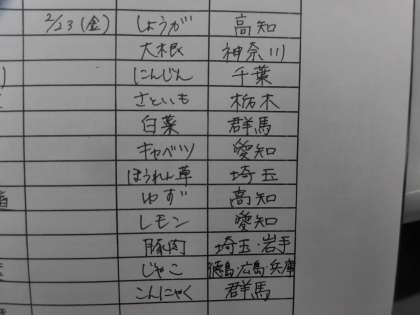 2/23(金) しょうが 高知
大根 神奈川
にんじん 千葉
さといも 栃木
白菜 群馬
キャベツ 愛知
ほうれん草 埼玉
ゆず 高知
レモン 愛知
豚肉 埼玉・岩手
じゃこ 徳島・広島・兵庫
こんにゃく 群馬